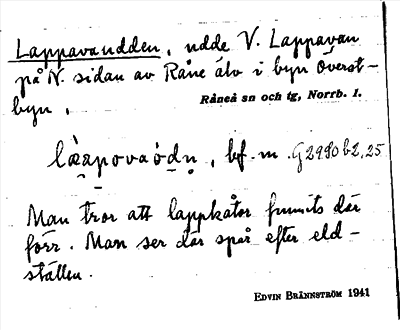 Lappavaudden, udde V. Lappavan
på N. sidan av Råne älv i byn Överst-
byn.
Råneå sn och tg, Norrb. l.
bf. m. G2990 b2, 25
Man tror att lappkåtor funnits där
förr. Man ser där spår efter eld-
ställen.
EDVIN BRÄNNSTRÖM 1941